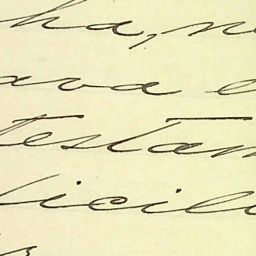 ha, n
ava e
testam
icili